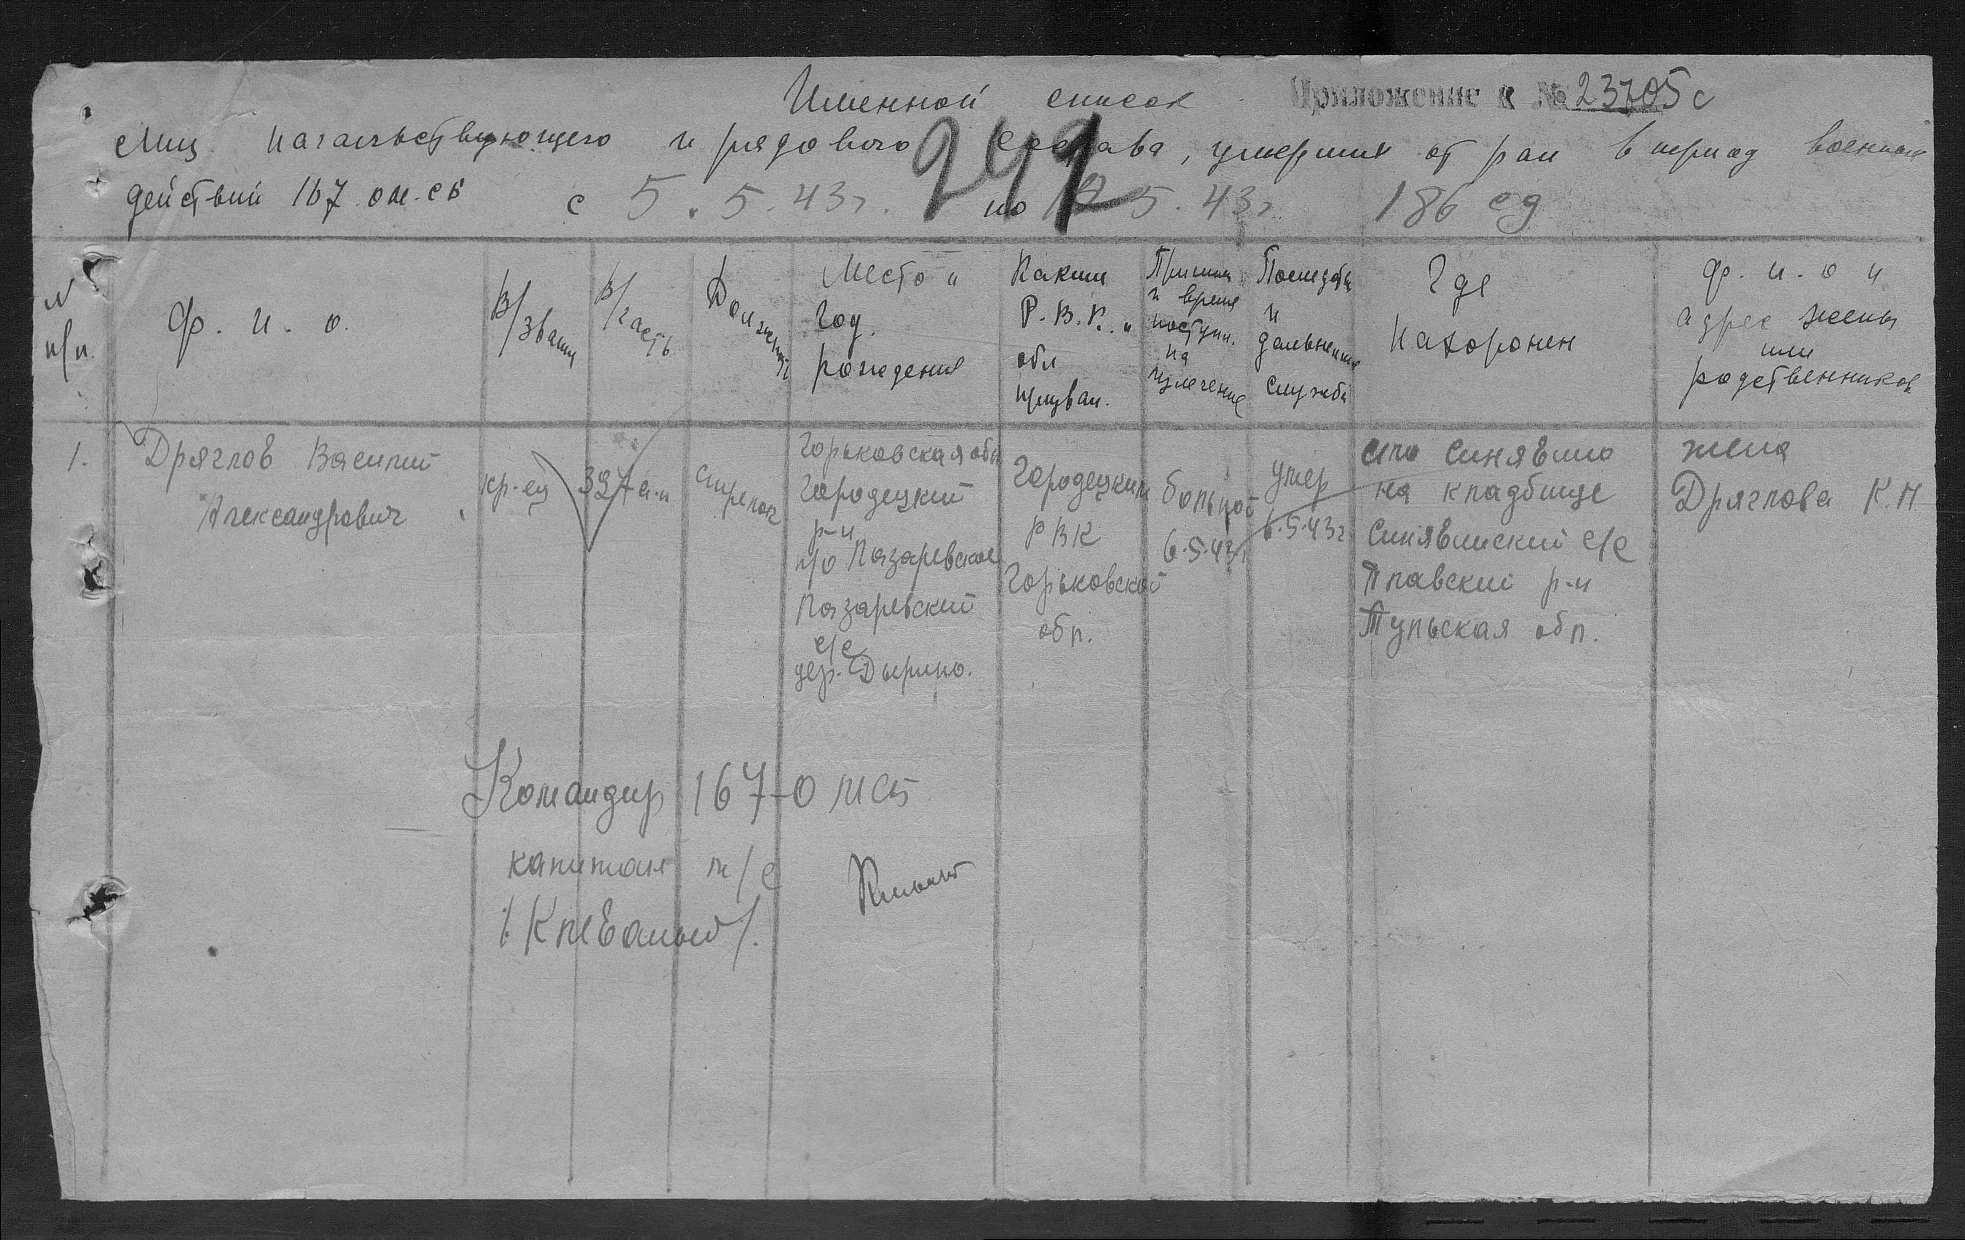 Именной список
Приложение к № 23705с
Лиц начальствующего и рядового состава, умерших от ран в период военных
действий 167 ом.сб с 5.5.43г. по 12 5.43г 186 сд
249
N п/п
Ф. И. О.
В/звание
В/часть
Должность
Место и
год
рождения
Каким
Р.В.К. и
обл
призван.
Причина
и время
поступл.
на
излечение
Последоб
и
дальнейшие
службы
Где
похоронен
Ф. И. О и
адрес жены
или
родственников
1.
Дряглов Василий
Александрович
кр-ец
327 а.п
стрелок
Горьковская обл
Городецкий
р-н
п/о Лазаревское
Лазаревский
с/с
дер. Дырино.
Городецким
РВК
Горьковской
обл.
больной
6.5.43г
умер
6.5.43г
Синявино
на кладбище
Синявинский с/с
Плавский р-н
Тульская обл.
жена
Дряглова К.Н
Командир 167-омсб
капитан м/с
/Клеваный/.